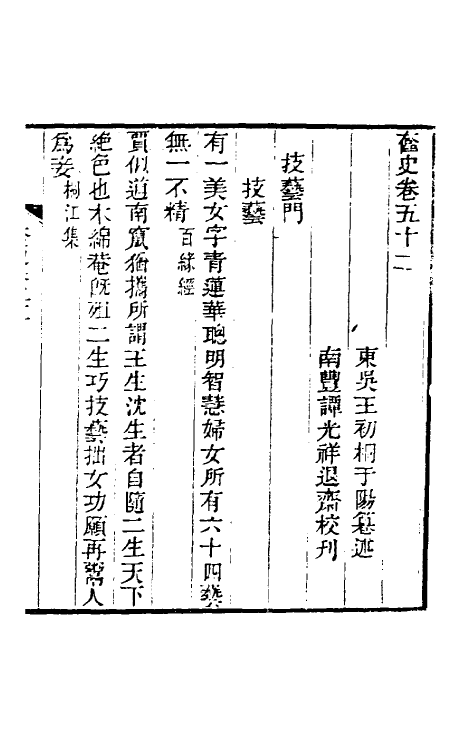 奩史卷五十二
東吳王初桐于陽纂述
南豐譚光祥退齋校刊
技藝門
技藝
有一美女字青蓮華聰明智慧婦女所有六十四藝
無一不精百緣經
賈似道南竄猶攜所謂王生沈生者自隨二生天下
絕色也木綿菴既殂二生巧技藝拙女功願再鬻人
爲妾桐江集